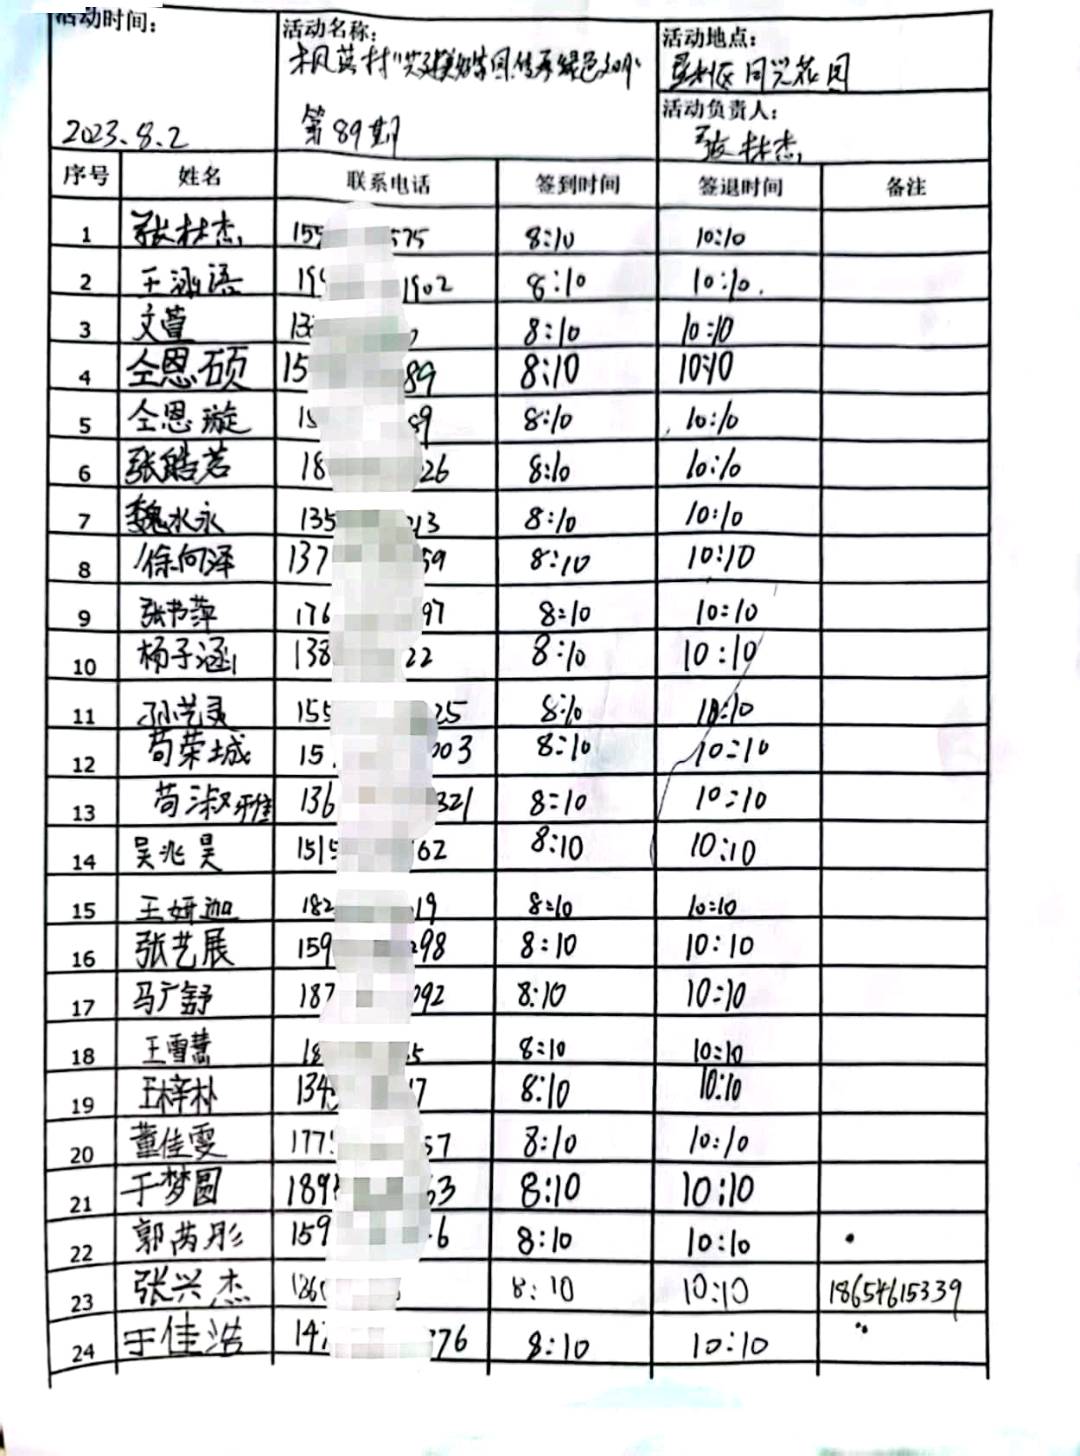 活动时间：
2023.8.2
活动名称：
枫英村
第89期
活动地点：
垦利区同兴花园
活动负责人：
张林杰
序号 姓名 联系电话 签到时间 签退时间 备注
1 张林杰 155 575 8:10 10:10
2 王冰语 199 1902 8:10 10:10.
3 文萱 13 8:10 10:10
4 仝恩硕 15 89 8:10 10:10
5 仝恩璇 15 89 8:10 10:10
6 张皓若 18 26 8:10 10:10
7 魏水永 135 213 8:10 10:10
8 徐向泽 137 59 8:10 10:10
9 张书萍 176 97 8:10 10:10
10 杨子涵 138 22 8:10 10:10
11 孙艺灵 155 25 8:10 10:10
12 苟荣城 15 003 8:10 10:10
13 苟淑雅 136 321 8:10 10:10
14 吴兆昊 1515 162 8:10 10:10
15 王妍迦 182 19 8:10 10:10
16 张艺展 159 298 8:10 10:10
17 马广舒 187 092 8:10 10:10
18 王雪慧 18 5 8:10 10:10
19 王梓朴 134 17 8:10 10:10
20 董佳雯 177 57 8:10 10:10
21 于梦圆 189 63 8:10 10:10
22 郭芮彤 159 6 8:10 10:10
23 张兴杰 8:10 10:10 18654615339
24 于佳浩 147 376 8:10 10:10